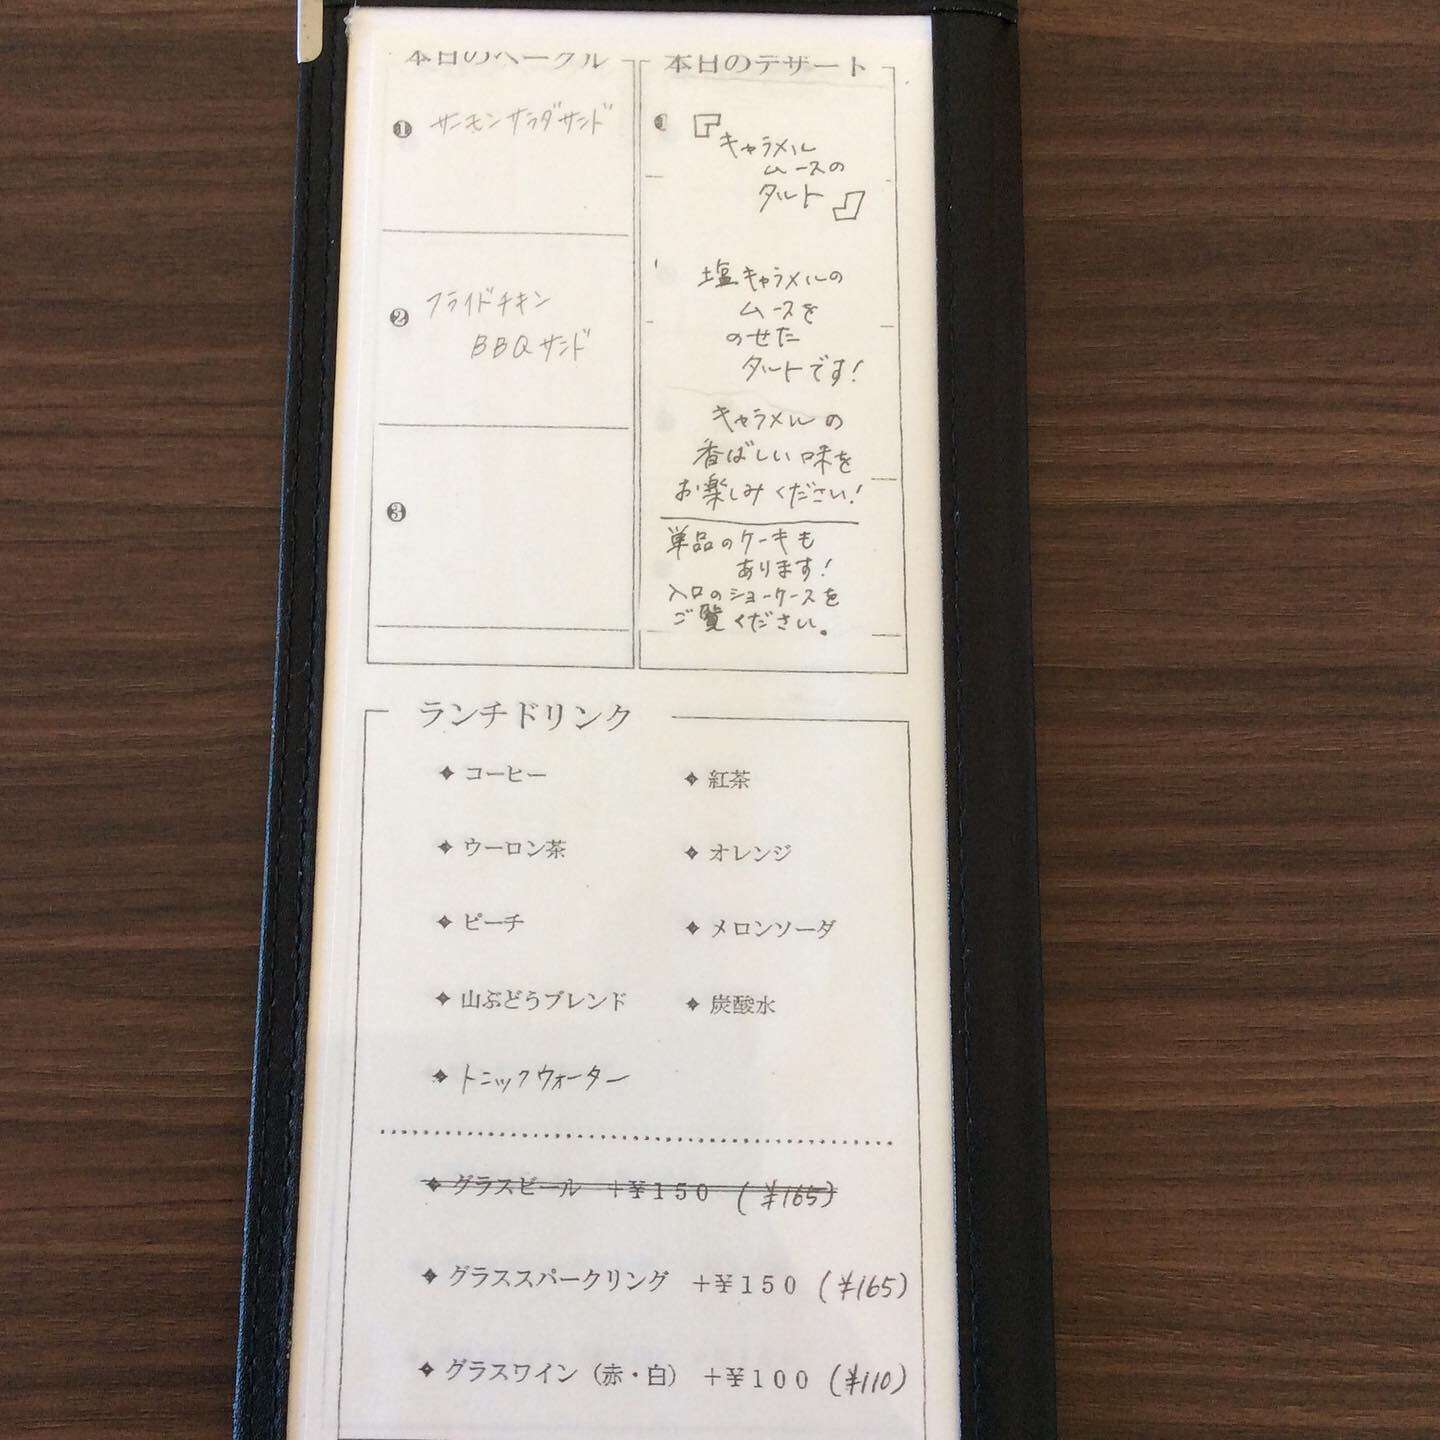 本日のベーグル
❶ サーモンサラダサンド
❷ フライドチキン
BBQサンド
❸
本日のデザート
『キャラメル
ムースの
タルト』
塩キャラメルの
ムースを
のせた
タルトです!
キャラメルの
香ばしい味を
お楽しみください!
単品のケーキも
あります!
入口のショーケースを
ご覧ください。
ランチドリンク
コーヒー
紅茶
ウーロン茶
オレンジ
ピーチ
メロンソーダ
山ぶどうブレンド
炭酸水
トニックウォーター
グラスビール +¥150 (¥165)
グラススパークリング +¥150 (¥165)
グラスワイン（赤・白） +¥100 (¥110)